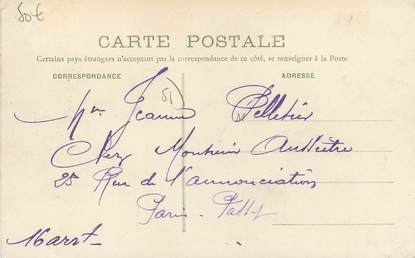 50€
CARTE POSTALE
Certains pays étrangers n'acceptant pas la correspondance de ce côté, se renseigner à la Poste
CORRESPONDANCE ADRESSE
51
Jeanne Pelletier
Chez Monsieur
25 Rue de l'annonciation
Paris - Passy
16 arrt